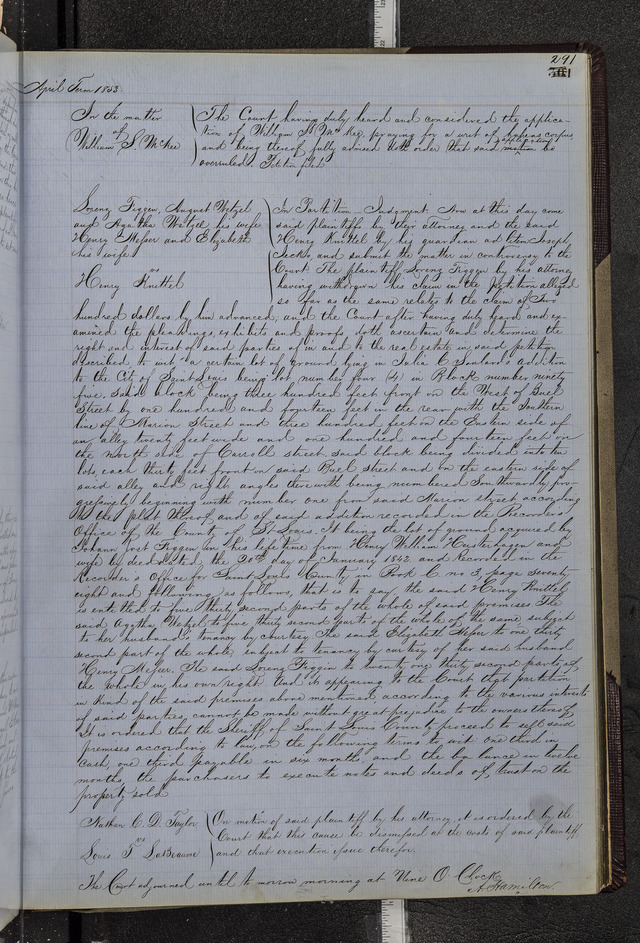 291
April Term 1853
In the matter
of
William S. McKee
The Court having duly heard and considered the applica-
tion of William S. McKee praying for a writ of habeas corpus
and being thereof fully advised doth order that said application be
overruled. Petition filed
Lorenz Figgen, August Wetzel
and Agatha Wetzel his wife
Henry Messer and Elizabeth
his wife
vs
Henry Knittel
In Partition - Judgment. Now at this day come
said plaintiffs by their attorney and the said
Henry Knittel by his guardian ad litem Joseph
and submit the matter in controversy to the
Court. The plaintiff Lorenz Figgen by his attorney
having withdrawn his claim in the petition alleged
so far as the same relates to the claim of Two
hundred dollars by him advanced, and the Court after having duly heard and ex-
amined the pleadings, exhibits and proofs, doth ascertain and determine the
right and interest of said parties of in and to the real estate in said petition
described to wit "a certain lot of ground lying in Julia C. Soulard's addition
to the City of Saint Louis being lot number four (4) in Block number ninety
five, said block being three hundred feet front on the West of Buel
Street by one hundred and fourteen feet in the rear with the Southern
line of Marion Street and three hundred feet on the Eastern side of
an alley twenty feet wide and one hundred and fourteen feet on
the north side of Carroll street said block being divided into ten
lots, each thirty feet front on said Buel street and on the eastern side of
said alley and right angles therewith being numbered Southwardly pro-
gressively beginning with number one from said Marion street according
to the plat thereof and of said addition recorded in the Recorder's
Office of the County of St Louis. It being the lot of ground acquired by
Johann Jost Figgen in his life time from Henry William and
wife by deed dated the 30th day of January 1842 and Recorded in the
Recorder's Office for Saint Louis County in Book C no 3, page seventy
eight and following, as follows, that is to say, the said Henry Knittel
is entitled to five thirty second parts of the whole of said premises The
said Agatha Wetzel to five thirty second parts of the whole of the same subject
to her husband's tenancy by courtesy The said Elizabeth Messer to one thirty
second part of the whole subject to tenancy by curtesy of her said husband
Henry Messer. The said Lorenz Figgin to twenty one thirty second parts of
the whole in his own right. And it appearing to the Court that partition
in kind of the said premises above mentioned, according to the various interests
of said parties, cannot be made without great prejudice to the owners thereof
It is ordered that the Sheriff of Saint Louis County proceed to sell said
premises according to law, on the following terms to wit one third in
Cash, one third payable in six months, and the balance in twelve
months, the purchasers to execute notes and deeds of trust on the
property sold
Nathan C. D. Taylor
vs
Louis T. LaBeaume
On motion of said plaintiff by his attorney it is ordered by the
Court that this cause be dismissed at the costs of said plaintiff
and that execution issue therefor.
The Court adjourned until to morrow morning at Nine O'Clock
A. Hamilton